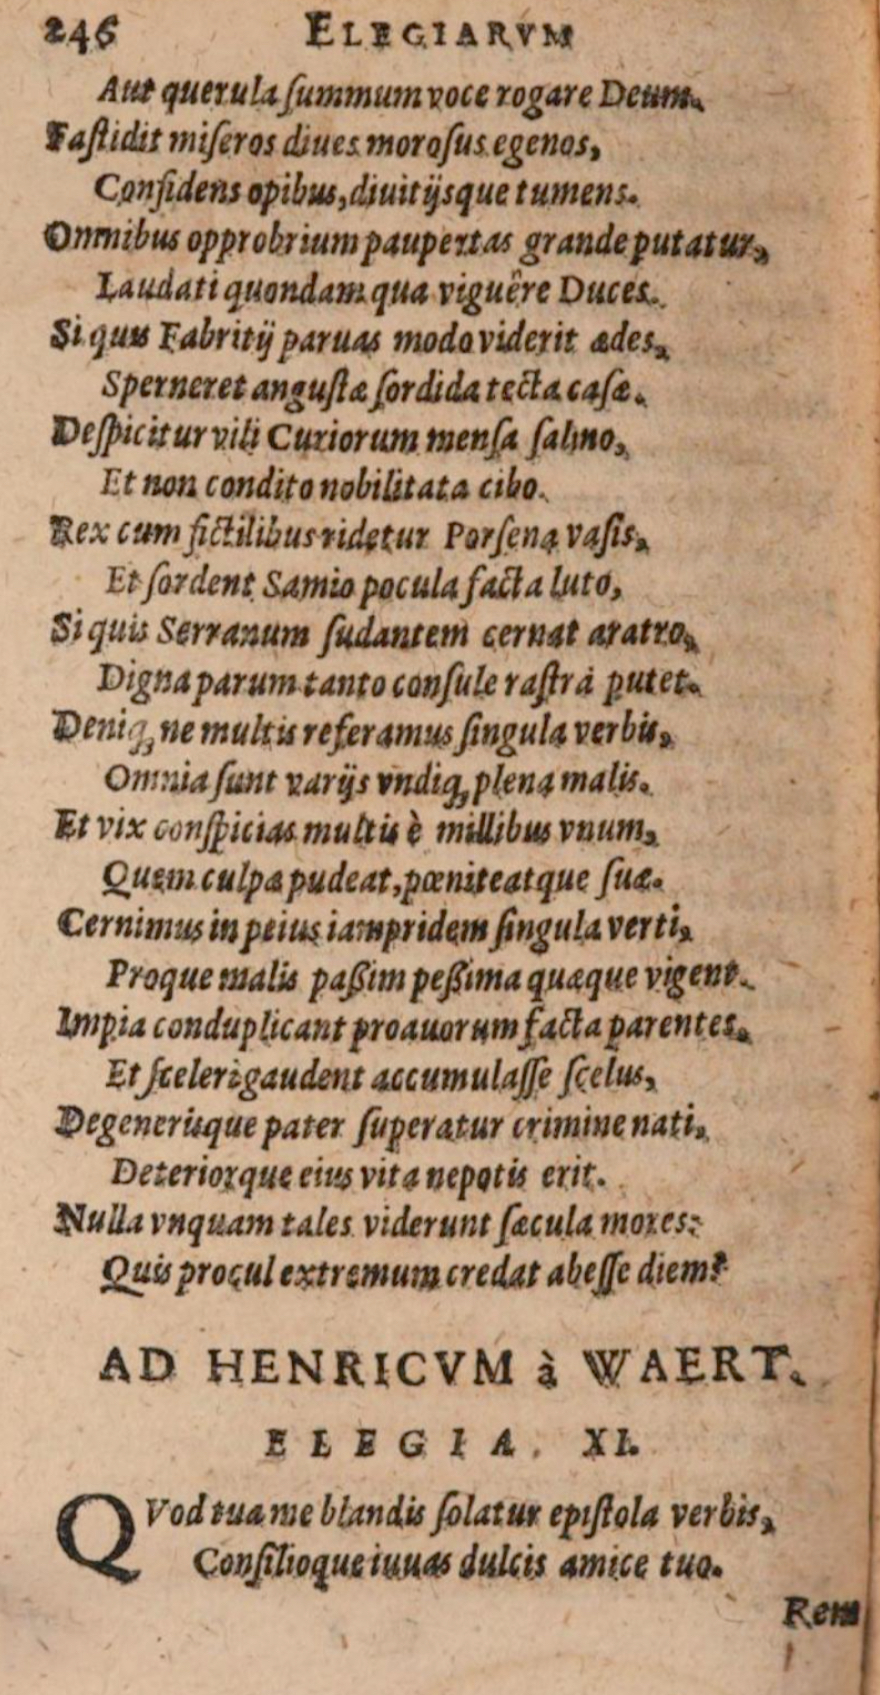 246 ELEGIARVM
Aut querula ſummum voce rogare Deum.
Faſtidit miſeros diues moroſus egenos,
Confidens opibus, diuitijsque tumens.
Omnibus opprobrium paupertas grande putatur,
Laudati quondam qua viguêre Duces.
Si quis Fabritij paruas modo viderit ædes,
Sperneret anguſtæ ſordida tecta caſæ.
Deſpicitur vili Curiorum menſa ſalino,
Et non condito nobilitata cibo.
Rex cum fictilibus ridetur Porſena vaſis,
Et ſordent Samio pocula facta luto,
Si quis Serranum ſudantem cernat aratro,
Digna parum tanto conſule raſtra putet.
Deniq; ne multis referamus ſingula verbis,
Omnia ſunt varijs vndiq; plena malis.
Et vix conſpicias multis è millibus vnum,
Quem culpa pudeat, pœniteatque ſuæ.
Cernimus in peius iampridem ſingula verti,
Proque malis paßim peßima quæque vigent.
Impia conduplicant proauorum facta parentes,
Et ſceleri gaudent accumulaſſe ſcelus,
Degenerisque pater ſuperatur crimine nati,
Deteriorque eius vita nepotis erit.
Nulla vnquam tales viderunt ſæcula mores:
Quis procul extremum credat abeſſe diem?
AD HENRICVM à WAERT.
ELEGIA. XI.
QVod tua me blandis ſolatur epiſtola verbis,
Conſilioque iuuas dulcis amice tuo.
Rem